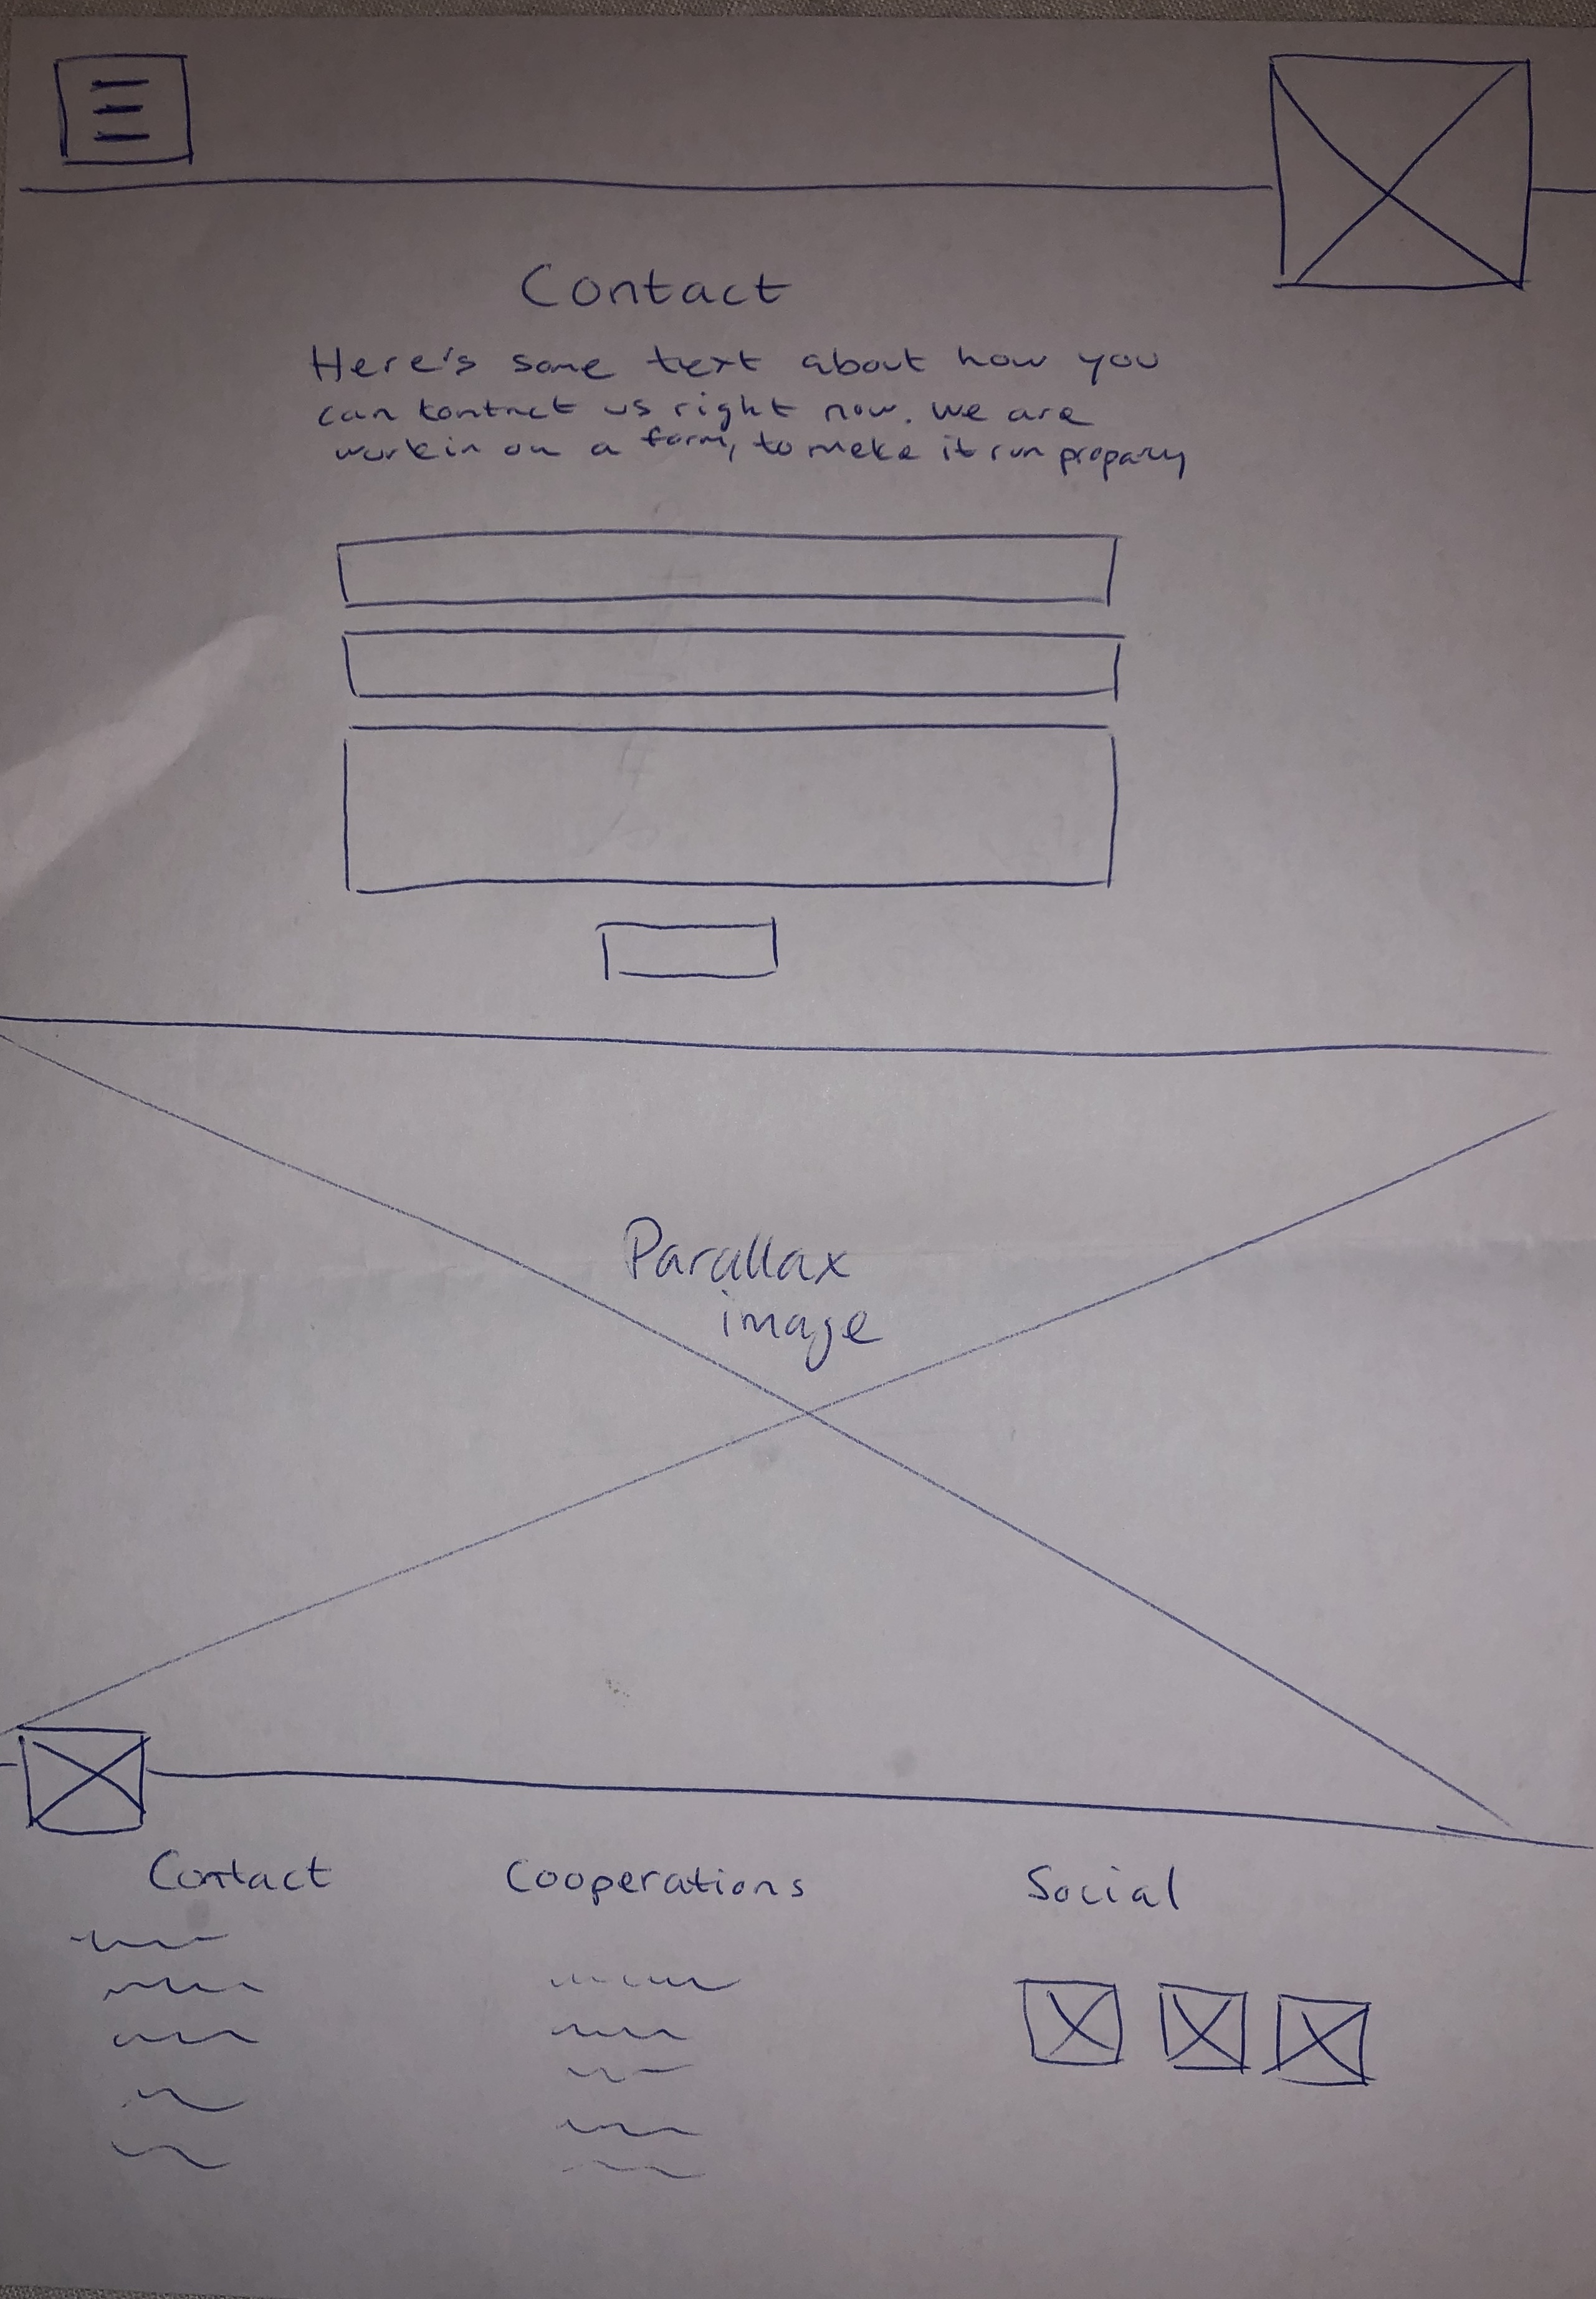 Contact
Here's some text about how you
can kontact us right now. We are
workin on a form, to make it run propary
Parallax
image
Contact
Cooperations
Social